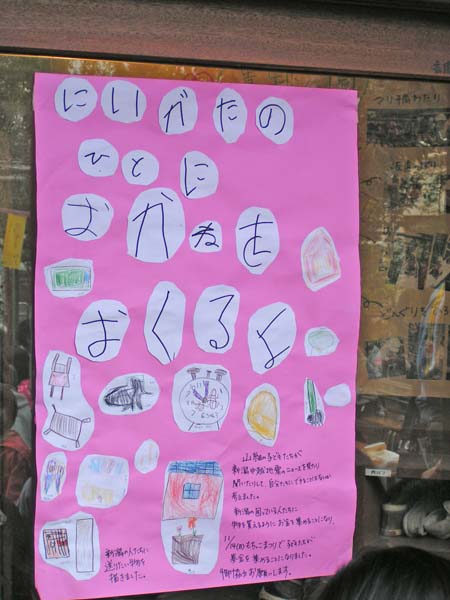 にいがたの
ひとに
おかねを
おくるよ
山組の子どもたちが
新潟中越地震のニュースを見たり
聞いたりして、自分たちにできることはないか
考えました。
新潟の困っている人たちに
物を買えるようにお金を集めることになり、
11/14(日)もちつきまつりで子どもたちが
募金を集めることになりました。
御協力お願いします。
新潟の人たちに
送りたい物を
描きました。